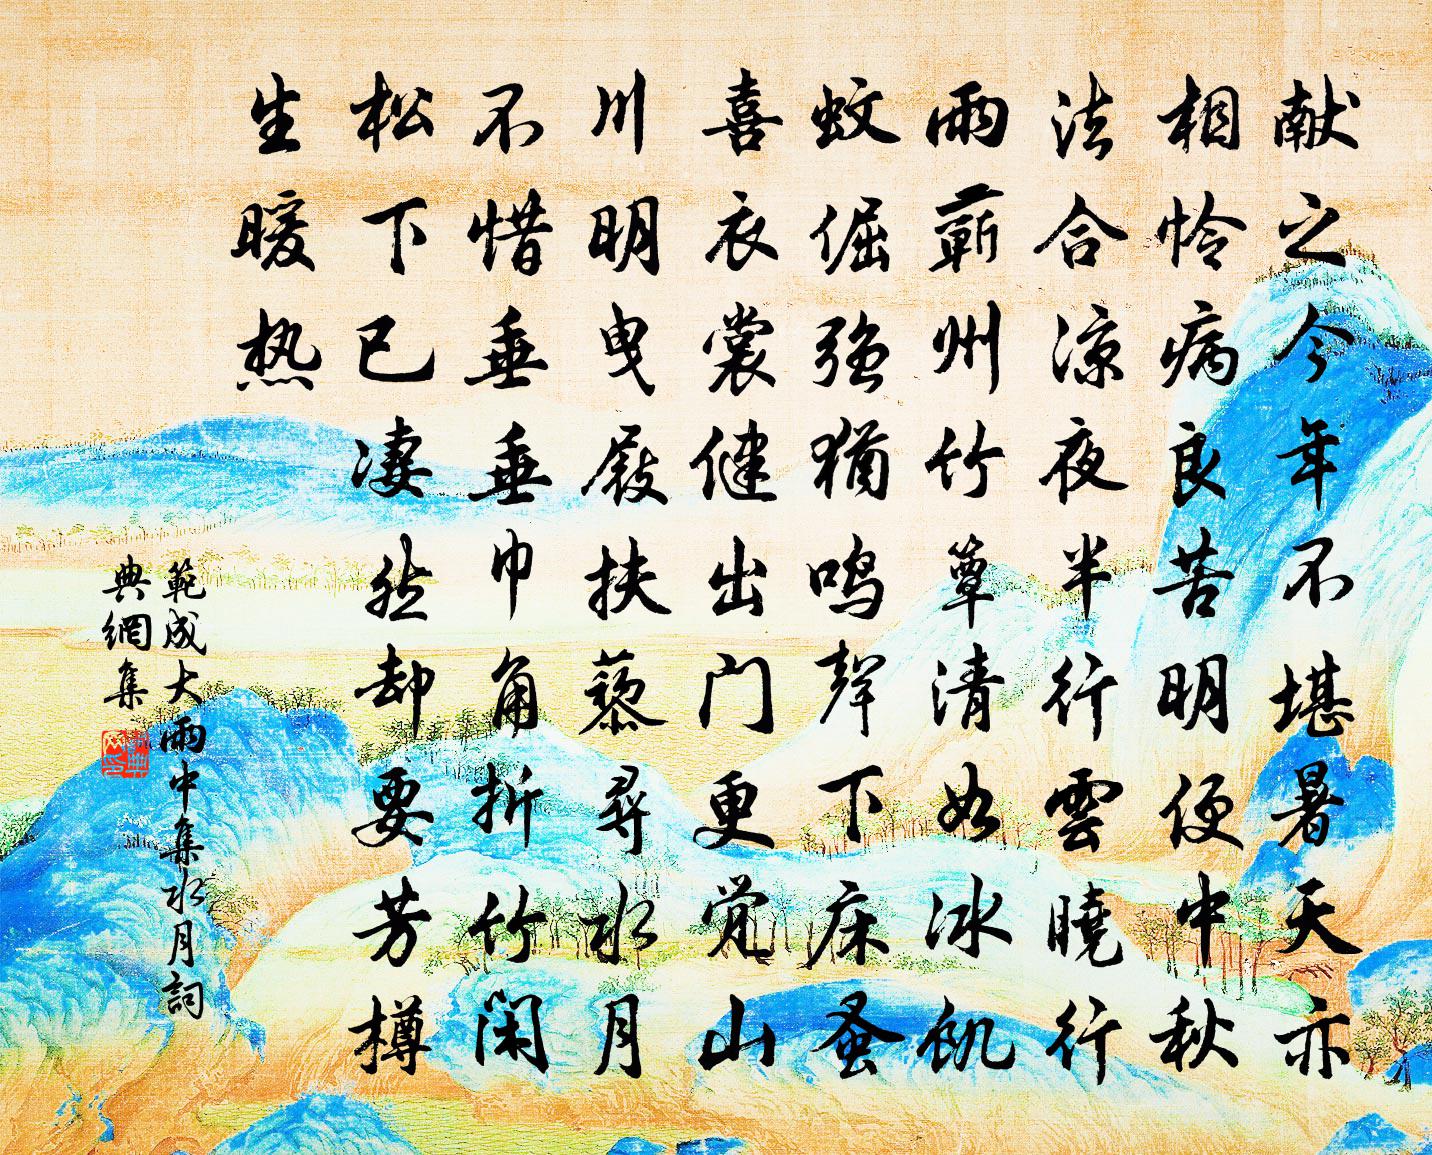 献之今年不堪暑天亦
相怜病良苦明便中秋
法合凉夜半行雲曉行
雨蕲州竹簟清如冰飢
蚊倔强猶鸣聲下床蚤
喜衣裳健出门更觉山
川明曳屐扶藜尋水月
不惜垂垂巾角折竹闲
松下已凄然却要芳樽
生暖热
範成大雨中集水月詞
典網集